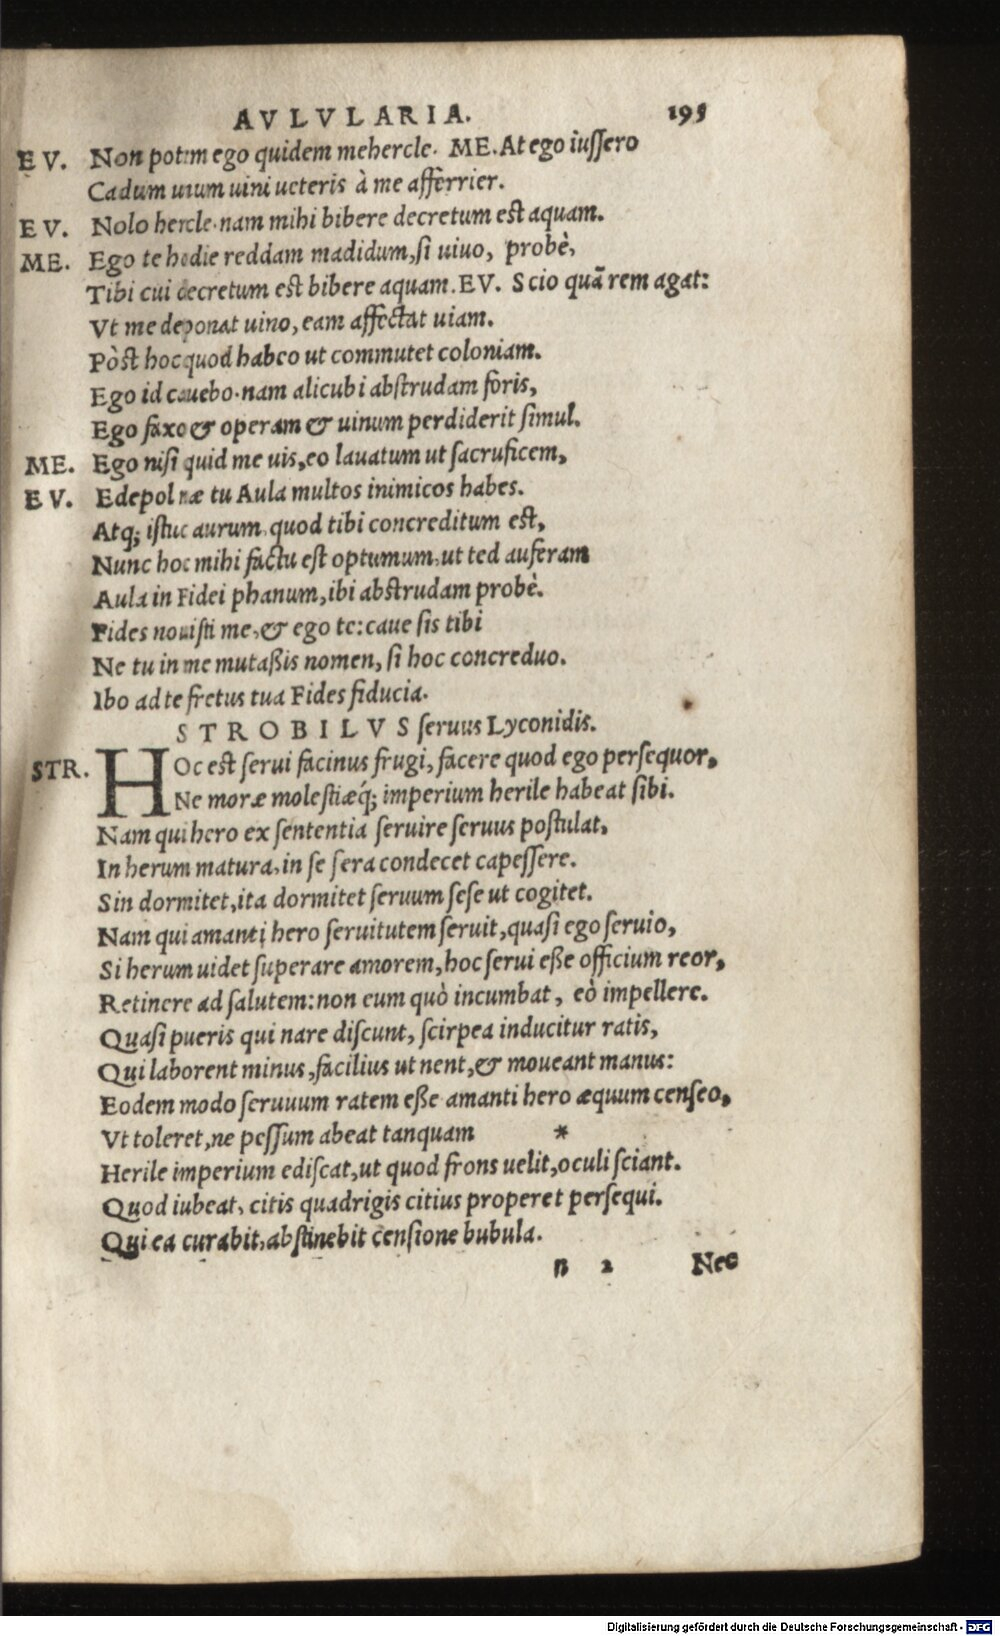 AVLVLARIA. 195
EV. Non potem ego quidem mehercle. ME. At ego iussero
Cadum unum uini ueteris à me afferrier.
EV. Nolo hercle. nam mihi bibere decretum est aquam.
ME. Ego te hodie reddam madidum, si uiuo, probè,
Tibi cui decretum est bibere aquam. EV. Scio quã rem agat:
Vt me deponat uino, eam affectat uiam.
Pòst hoc quod habeo ut commutet coloniam.
Ego id cauebo. nam alicubi abstrudam foris,
Ego faxo & operam & uinum perdiderit simul.
ME. Ego nisi quid me uis, eo lauatum ut sacruficem,
EV. Edepol næ tu Aula multos inimicos habes.
Atq; istuc aurum, quod tibi concreditum est,
Nunc hoc mihi factu est optumum, ut ted auferam
Aula in Fidei phanum, ibi abstrudam probè.
Fides nouisti me, & ego te: caue sis tibi
Ne tu in me mutaßis nomen, si hoc concreduo.
Ibo ad te fretus tua Fides fiducia.
STROBILVS seruus Lyconidis.
STR. HOc est serui facinus frugi, facere quod ego persequor,
Ne moræ molestiæq́; imperium herile habeat sibi.
Nam qui hero ex sententia seruire seruus postulat,
In herum matura, in se sera condecet capessere.
Sin dormitet, ita dormitet seruum sese ut cogitet.
Nam qui amanti hero seruitutem seruit, quasi ego seruio,
Si herum uidet superare amorem, hoc serui eße officium reor,
Retinere ad salutem: non eum quò incumbat, eò impellere.
Quasi pueris qui nare discunt, scirpea inducitur ratis,
Qui laborent minus, facilius ut nent, & moueant manus:
Eodem modo seruuum ratem eße amanti hero æquum censeo,
Vt toleret, ne pessum abeat tanquam *
Herile imperium ediscat, ut quod frons uelit, oculi sciant.
Quod iubeat, citis quadrigis citius properet persequi.
Qui ea curabit, abstinebit censione bubula.
n 2 Nec
Digitalisierung gefördert durch die Deutsche Forschungsgemeinschaft - DFG